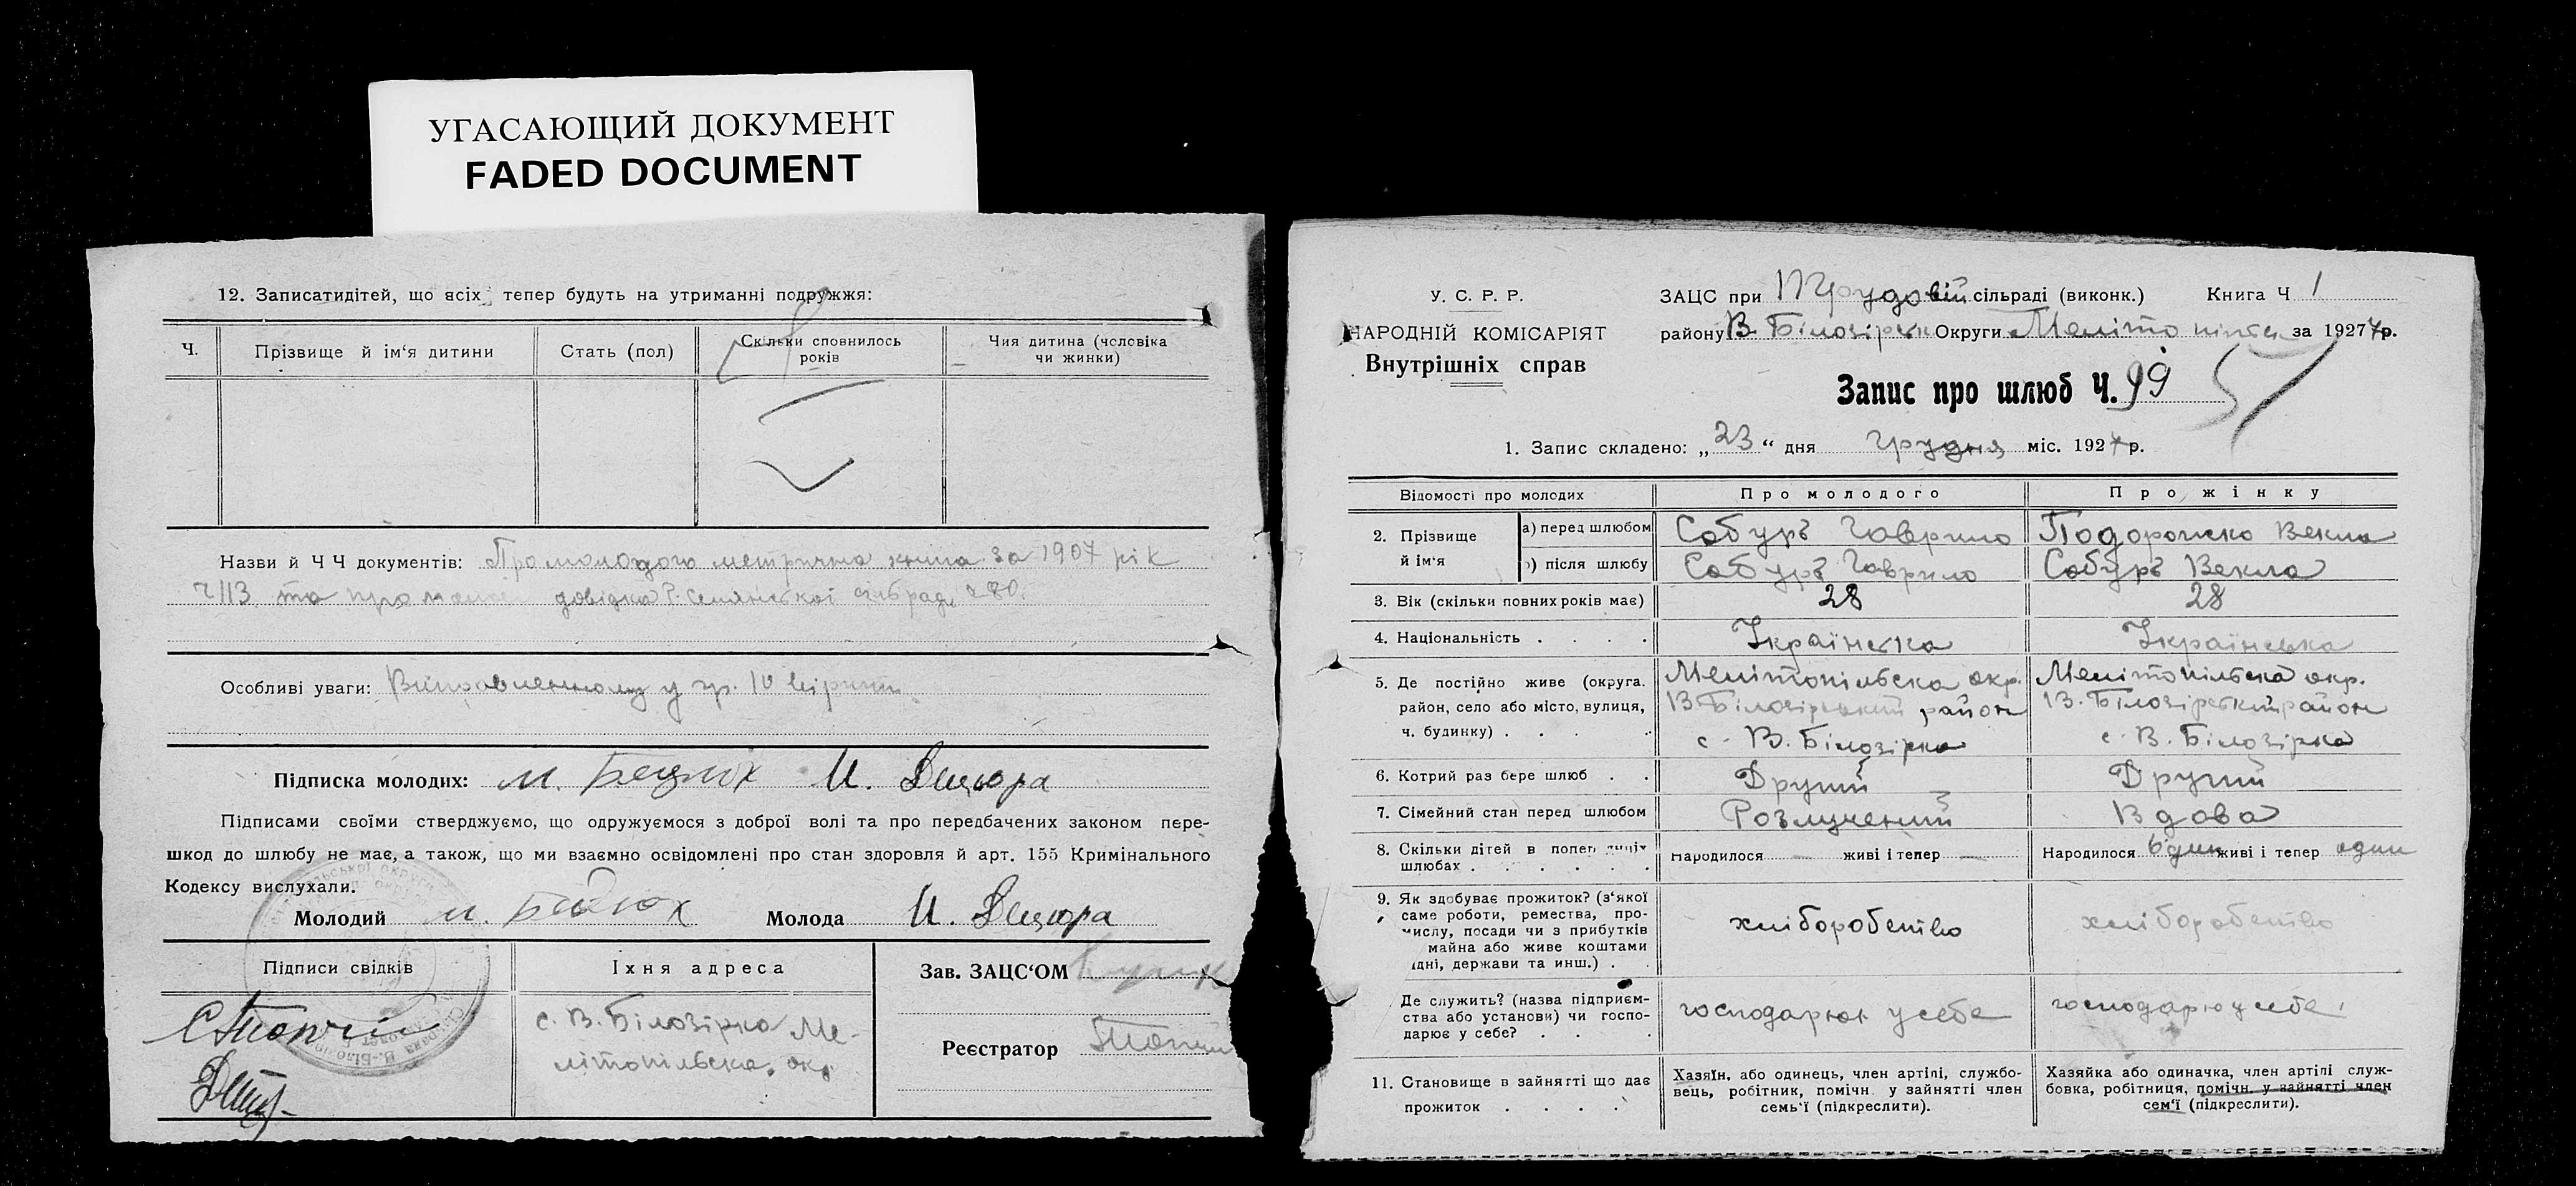 УГАСАЮЩИЙ ДОКУМЕНТ
FADED DOCUMENT
12. Записатидітей, що всіх тепер будуть на утриманні подружжя:
Ч.
Прізвище й ім'я дитини
Стать (пол)
Скільки сповнилось років
Чия дитина (чоловіка чи жинки)
Назви й Ч Ч документів: Про молодого метрична книга за 1907 рік
Ч 113 та про довідка сільради Ч 80.
Особливі уваги: у гр. 10 вірити
Підписка молодих: М. И. Дещюра
Підписами своїми стверджуємо, що одружуємося з доброї волі та про передбачених законом пере-
шкод до шлюбу не має, а також, що ми взаємно освідомлені про стан здоровля й арт. 155 Кримінального
Кодексу вислухали.
Молодий М. Молода И. Дещюра
Підписи свідків
Їхня адреса
с. В. Білозірка Ме-
літопільська окр
Зав. ЗАЦС'ОМ
Реєстратор
У. С. Р. Р.
НАРОДНІЙ КОМІСАРІЯТ
Внутрішніх справ
ЗАЦС при Трудовій сільраді (виконк.) Книга Ч 1
району В. Білозірськ Округи Меліто за 1927 р.
Запис про шлюб Ч. 99
57
1. Запис складено: „23“ дня грудня міс. 1927 р.
Відомості про молодих
Про молодого
Про жінку
2. Прізвище й ім'я
а) перед шлюбом Собуръ Гаврило Подорожко Векла
б) після шлюбу Собуръ Гаврило Собуръ Векла
3. Вік (скільки повних років має) 28 28
4. Національність . . . . Українська Українська
5. Де постійно живе (округа, район, село або місто, вулиця, ч. будинку) . . .
Мелітопільска окр.
В. Білозірський район
с. В. Білозірка
Мелітопільска окр.
В. Білозірский район
с. В. Білозірка
6. Котрий раз бере шлюб . . Другий Другий
7. Сімейний стан перед шлюбом Розлучений Вдова
8. Скільки дітей в попер шлюбах . . . . . .
Народилося — живі і тепер —
Народилося один живі і тепер один
9. Як здобуває прожиток? (з'якої
саме роботи, ремества, про-
мислу, посади чи з прибутків
майна або живе коштами
рідні, держави та инш.) .
хліборобство
хліборобство
Де служить? (назва підприєм-
ства або установи) чи госпо-
дарює у себе? . . .
господарює у себе
господарює у себе
11. Становище в зайнятті що дає
прожиток . . . .
Хазяїн, або одинець, член артілі, службо-
вець, робітник, помічн. у зайнятті член
семь'ї (підкреслити).
Хазяйка або одиначка, член артілі служ-
бовка, робітниця, помічн. у зайнятті член
сем'ї (підкреслити).